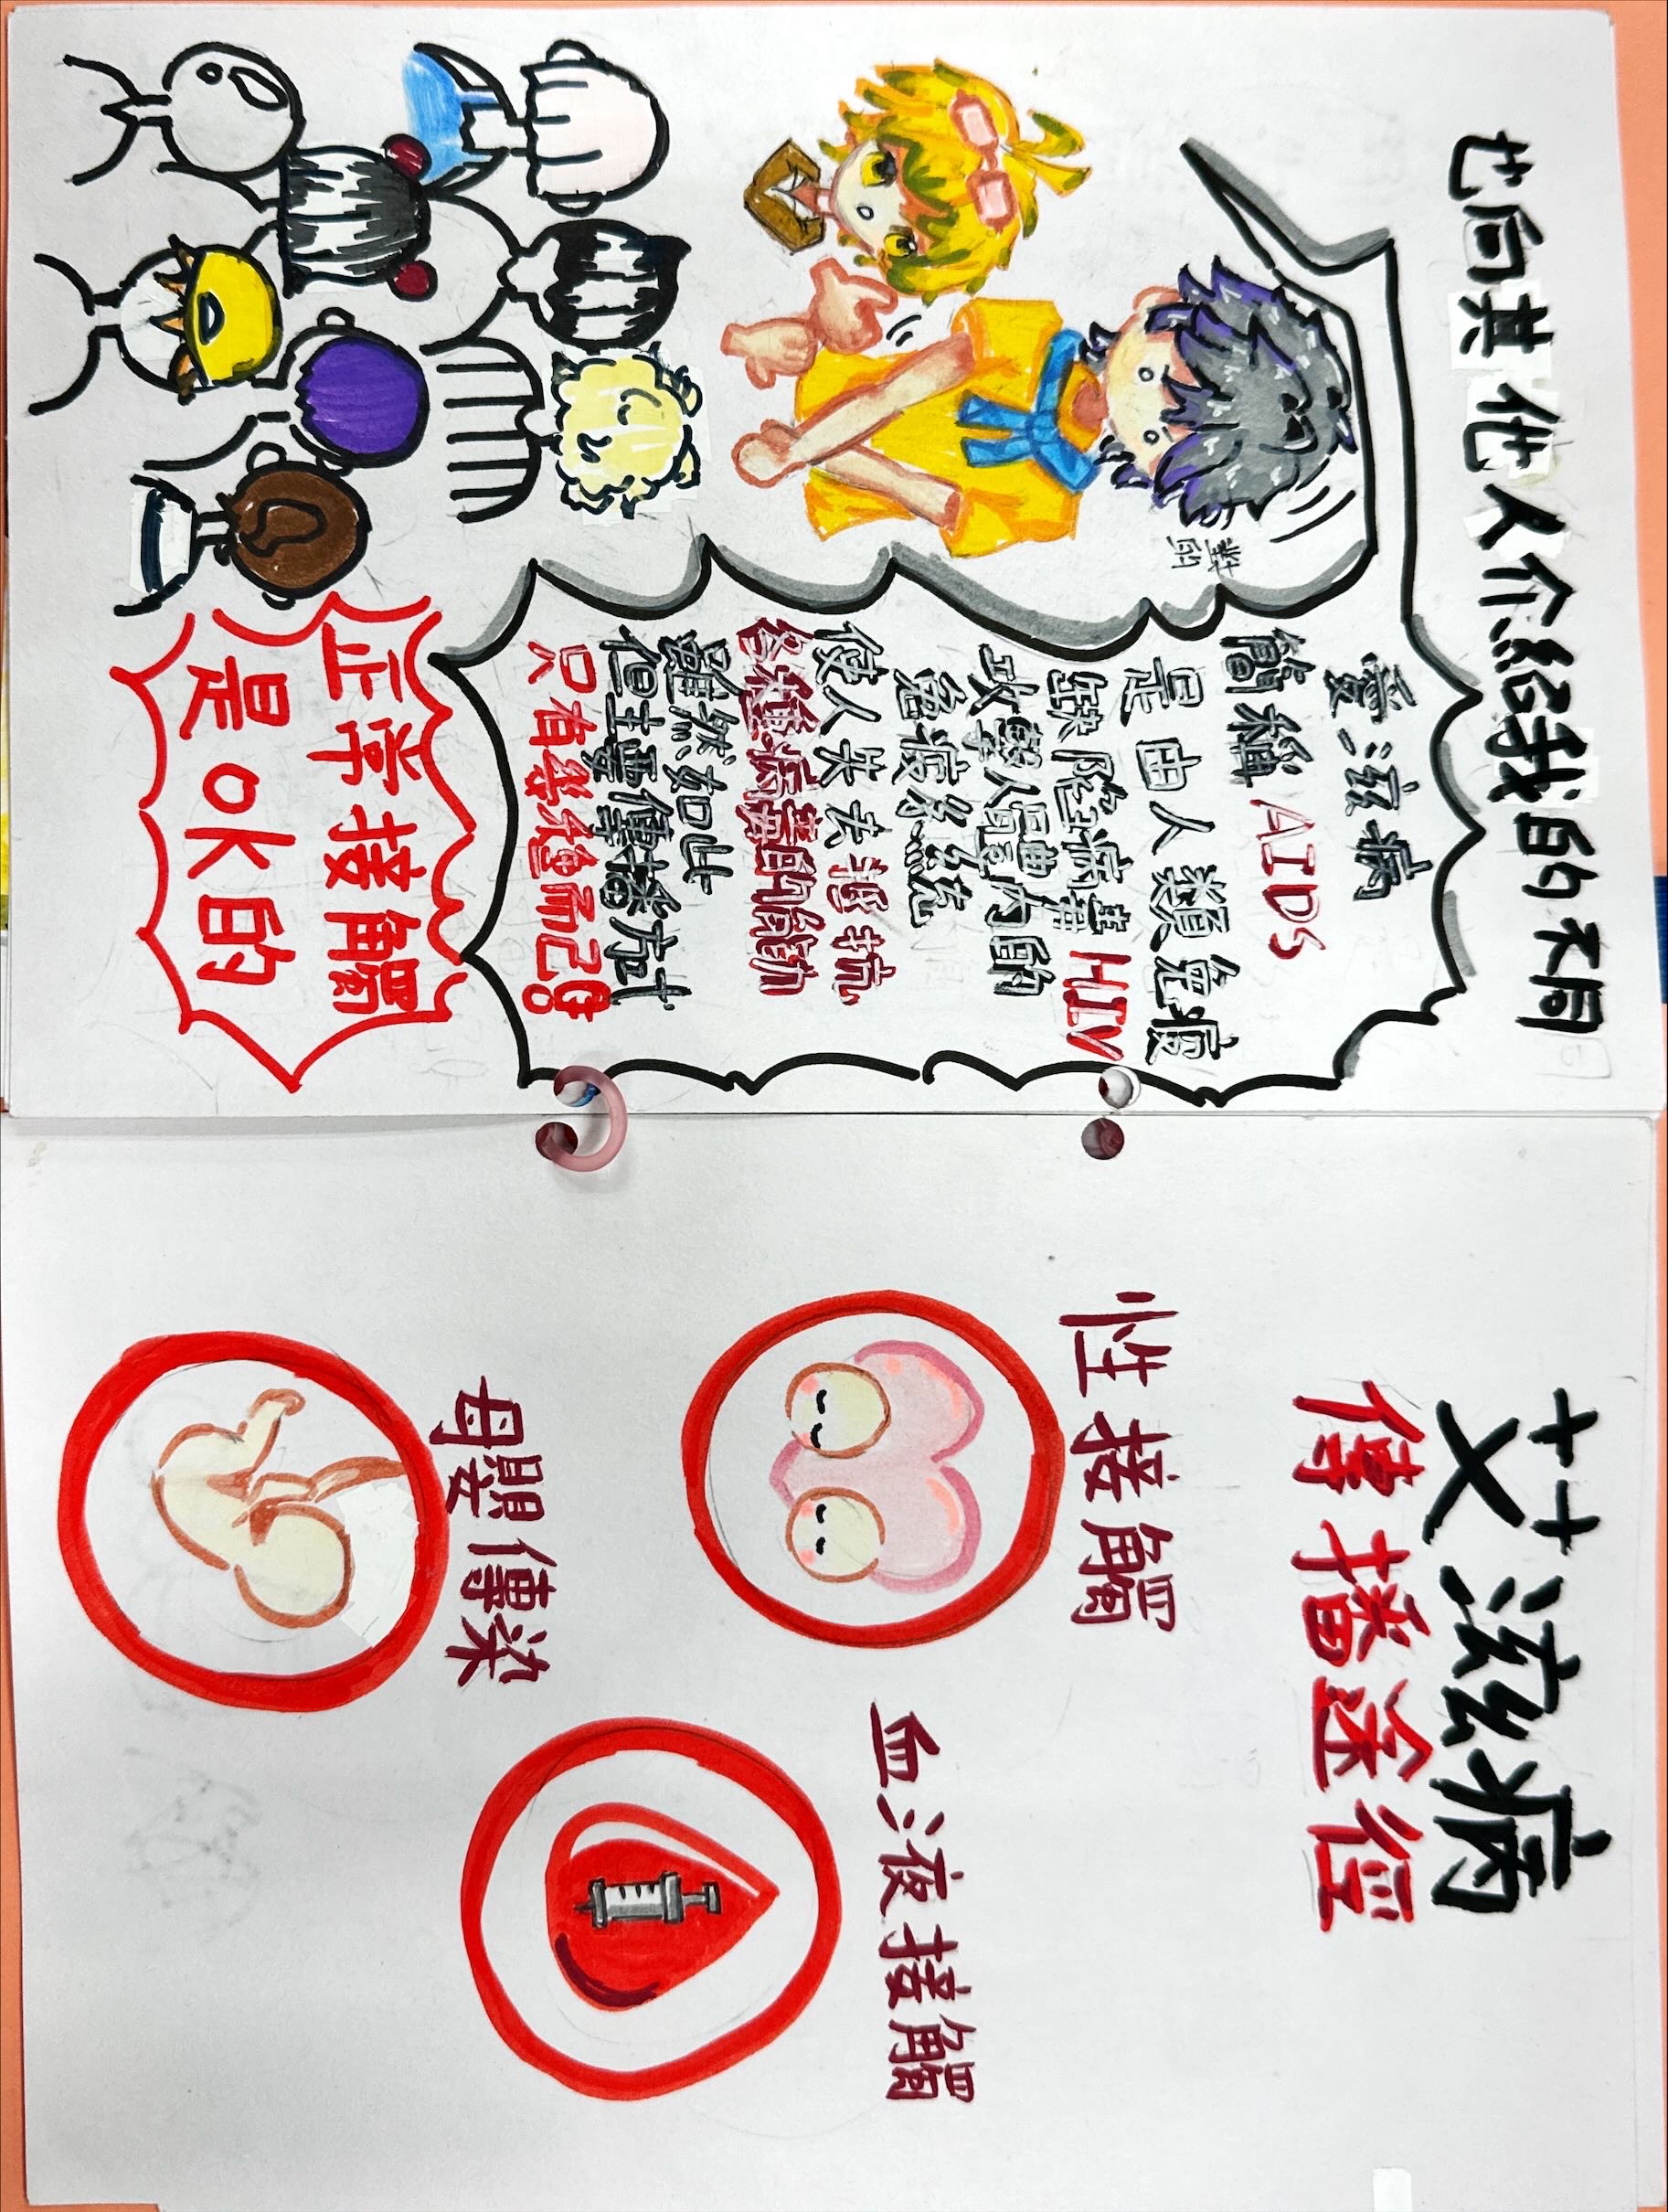 也向其他人介紹我的不同
對的
愛滋病
簡稱 AIDS
是由人類免疫
缺陷病毒HIV
攻擊人體內的
免疫系統
使人失去抵抗
各種病毒的能力
雖然如此
但主要傳播方式
只有幾種而已!
正常接觸
是OK的
艾滋病
傳播途徑
性接觸
血液接觸
母嬰傳染